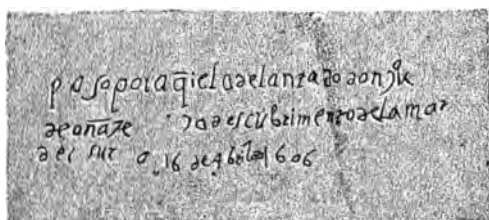 paso por aq̄i el adelantado don jua
de oñate descubrimento de la mar
del sur a 16 de 1606